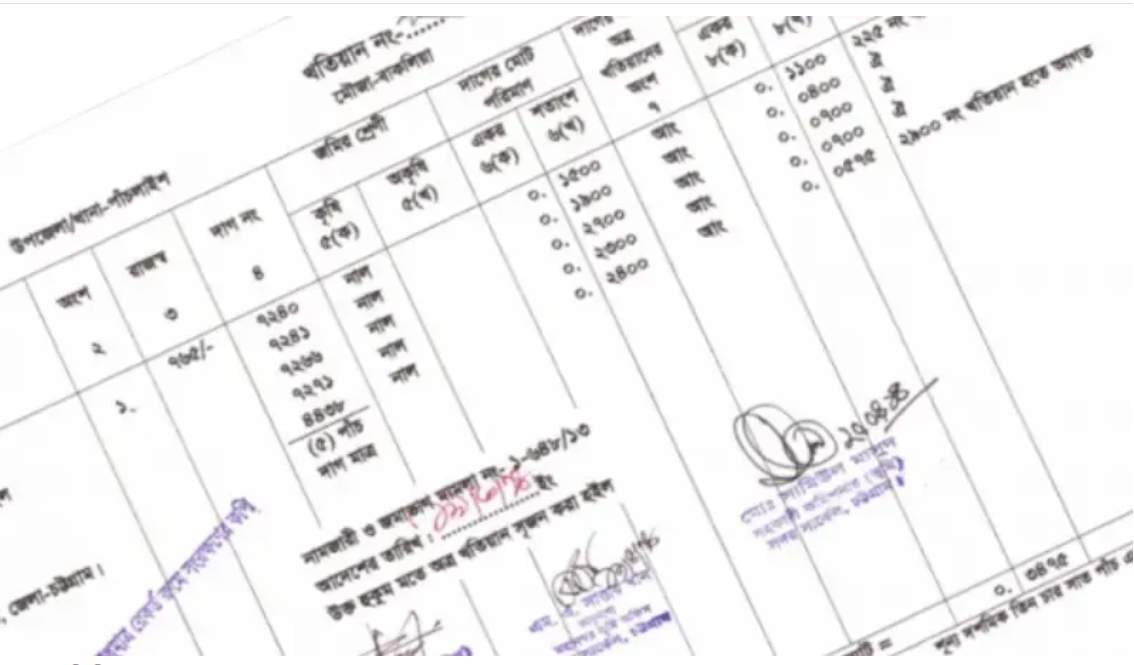 খতিয়ান নং-
মৌজা-বাকলিয়া
উপজেলা/থানা-পাঁচলাইশ
অংশ
২
রাজস্ব
৩
দাগ নং
৪
জমির শ্রেণী
কৃষি
৫(ক)
অকৃষি
৫(খ)
দাগের মোট
পরিমাণ
একর
৬(ক)
শতাংশ
৬(খ)
দাগের
অত্র
খতিয়ানের
অংশ
৭
একর
৮(ক)
৮(খ)
১.
৭৬৫/-
৭২৪০ নাল ০. ১৫০০ আং ০. ১১০০
৭২৪১ নাল ০. ১৯০০ আং ০. ০৪০০
৭২৬৬ নাল ০. ২৭০০ আং ০. ০৭০০
৭২৭১ নাল ০. ২৩০০ আং ০. ০৭০০
৪৪৩৮ নাল ০. ২৪০০ আং ০. ০৫৭৫
(৫) পাঁচ
দাগ মাত্র
২২৫ নং
ঐ
ঐ
ঐ
২৯০০ নং খতিয়ান হতে আগত
নামজারী ও জমাভাগ মামলা নং-১-৬৪৮/১৩
আদেশের তারিখ : ইং
উক্ত হুকুম মতে অত্র খতিয়ান সৃজন করা হইল
সহকারী কমিশনার (ভূমি)
সদর সার্কেল, চট্টগ্রাম।
, জেলা-চট্টগ্রাম।
০. ৩৪৭৫
শূন্য দশমিক তিন চার সাত পাঁচ